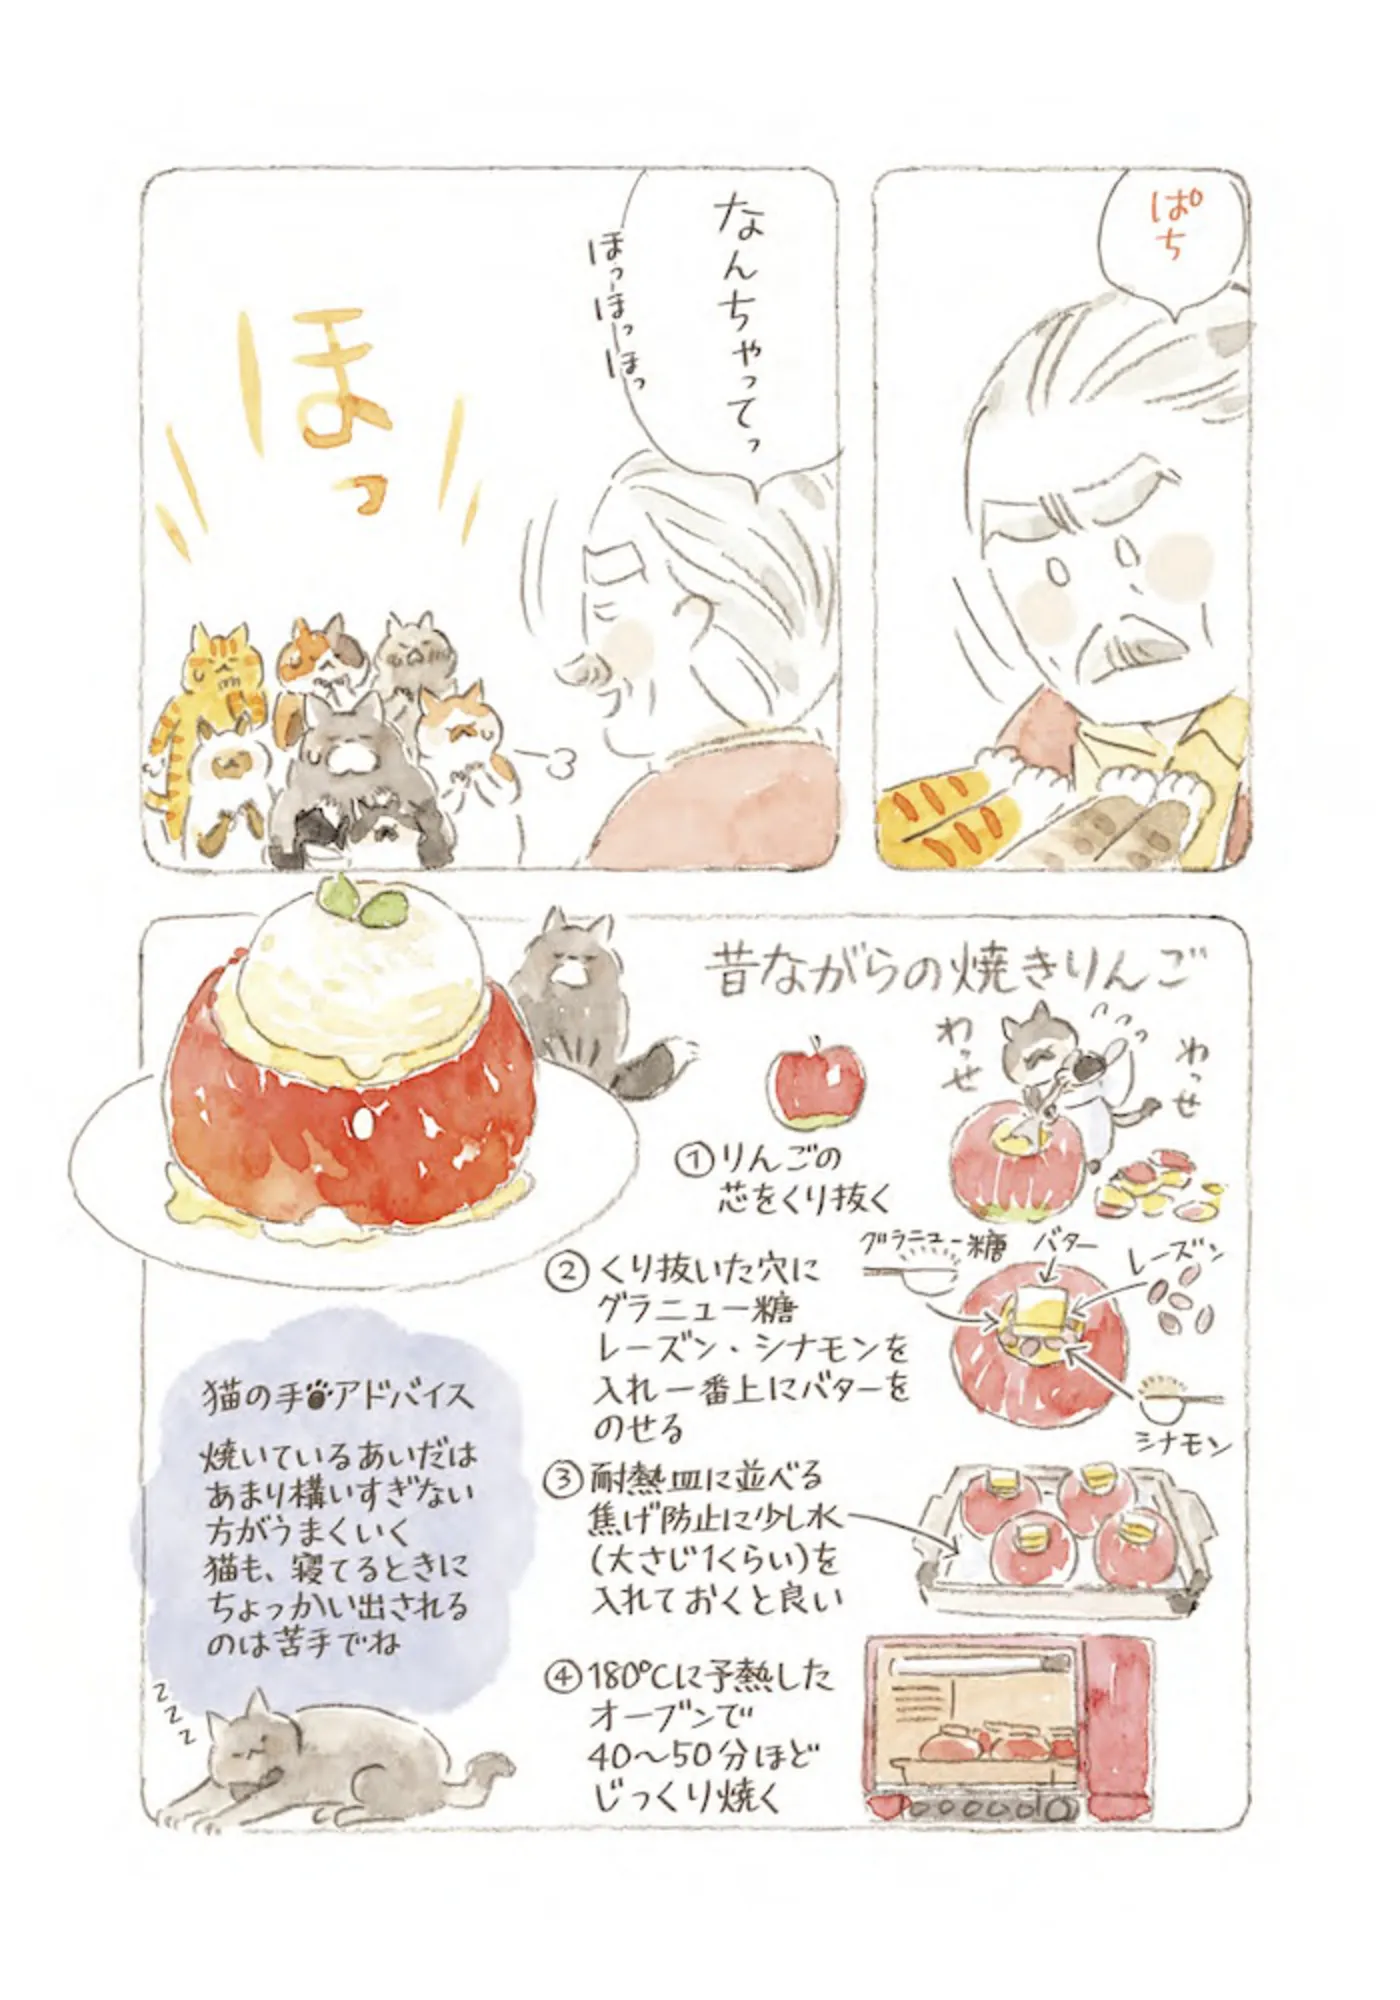 ぱち
なんちゃってっ
ほっほっほっ
ほっ
昔ながらの焼きりんご
わっせ
わっせ
①りんごの
芯をくり抜く
②くり抜いた穴に
グラニュー糖
レーズン・シナモンを
入れ一番上にバターを
のせる
グラニュー糖
バター
レーズン
シナモン
③耐熱皿に並べる
焦げ防止に少し水
(大さじ1くらい)を
入れておくと良い
④180℃に予熱した
オーブンで
40〜50分ほど
じっくり焼く
猫の手アドバイス
焼いているあいだは
あまり構いすぎない
方がうまくいく
猫も、寝てるときに
ちょっかい出される
のは苦手でね
zzz